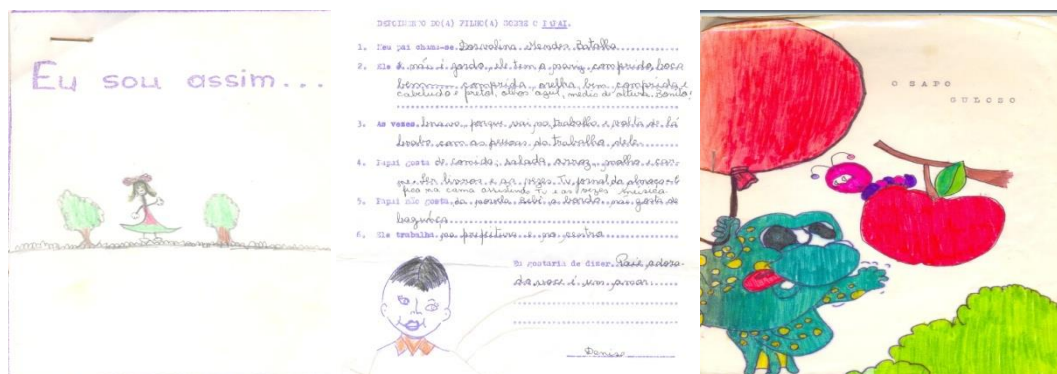 Eu sou assim...
DEPOIMENTO DO(A) FILHO(A) SOBRE O PAI.
1. Meu pai chama-se Dorvalino Mendes Batalha
2. Ele é não é gordo, ele tem o nariz comprido, boca
bem comprida, orelha bem comprida e
cabeludo e preto, olhos azul, médio de altura. Bonito!
3. As vezes bravo porque vai no trabalho e volta de lá
bravo com as pessoas do trabalho dele
4. Papai gosta de comida: salada, arroz, molho e car-
ne. Ler livros e as vezes Tv jornal do almoço e
fica na cama assistindo Tv e as vezes
5. Papai não gosta da novela Bebê a bordo, não gosta de
bagunça
6. Ele trabalha na prefeitura e no centro
Eu gostaria de dizer. Pai adora-
do você é um amor
Denise
O SAPO
GULOSO